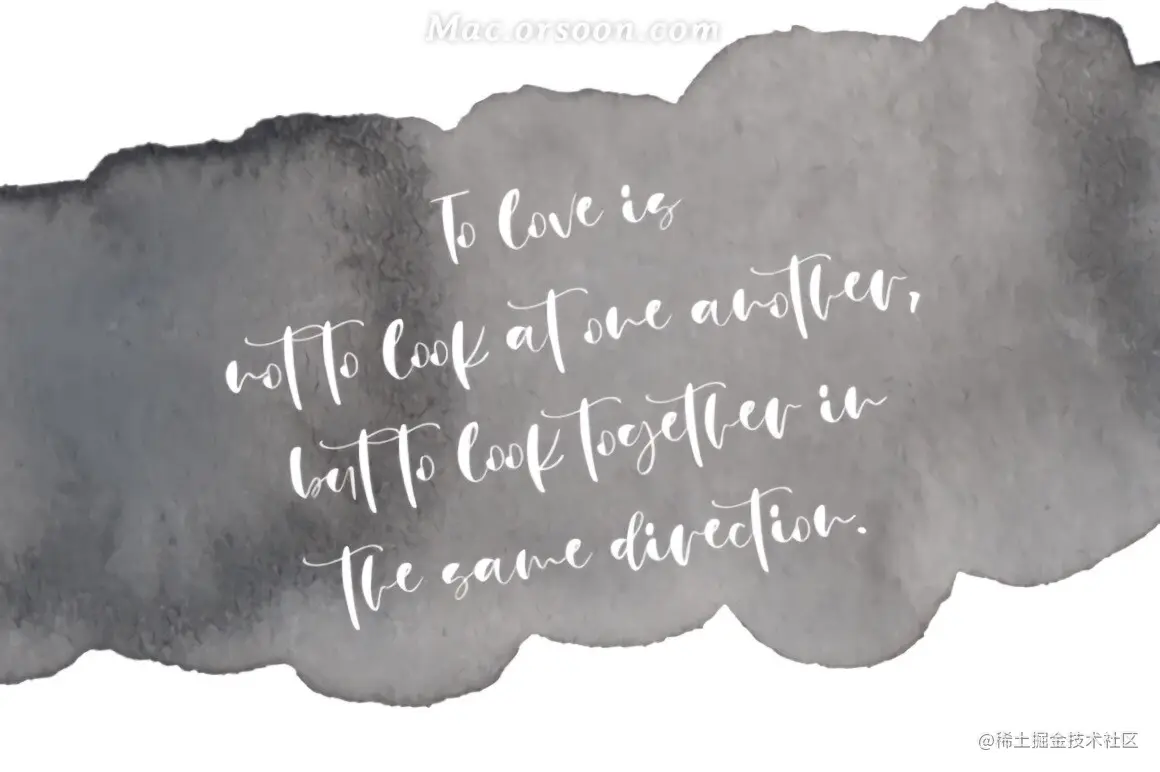 Mac.orsoon.com
To love is
not to look at one another,
but to look together in
the same direction.
@稀土掘金技术社区